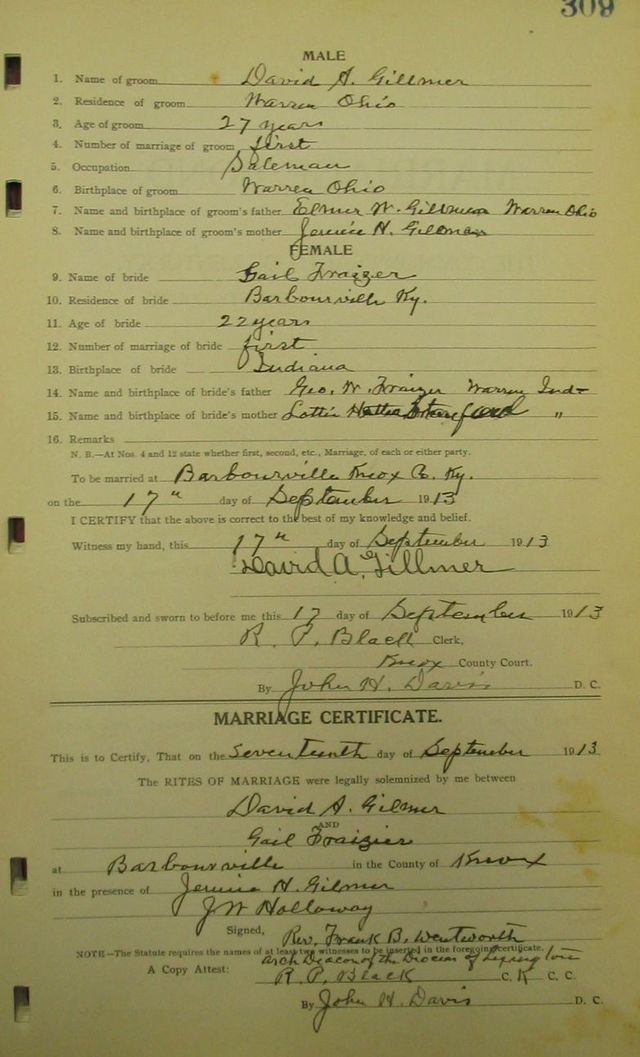 309
MALE
1. Name of groom David A. Gillmer
2. Residence of groom Warren Ohio
3. Age of groom 27 years
4. Number of marriage of groom first
5. Occupation Saleman
6. Birthplace of groom Warren Ohio
7. Name and birthplace of groom's father Elmer W. Gillmer Warren Ohio
8. Name and birthplace of groom's mother Jennie H. Gillmer
FEMALE
9. Name of bride Gail Fraizer
10. Residence of bride Barbourville Ky.
11. Age of bride 22 years
12. Number of marriage of bride first
13. Birthplace of bride Indiana
14. Name and birthplace of bride's father Geo. W. Fraizer Warren Ind-
15. Name and birthplace of bride's mother Lottie "
16. Remarks
N. B.—At Nos. 4 and 12 state whether first, second, etc., Marriage, of each or either party.
To be married at Barbourville Knox Co. Ky.
on the 17" day of September 1913
I CERTIFY that the above is correct to the best of my knowledge and belief.
Witness my hand, this 17" day of September 1913
David A. Gillmer
Subscribed and sworn to before me this 17 day of September 1913
R. P. Black Clerk,
Knox County Court.
By John H. Davis D. C.
MARRIAGE CERTIFICATE.
This is to Certify, That on the Seventeenth day of September 1913
The RITES OF MARRIAGE were legally solemnized by me between
David A. Gilmer
AND
Gail Fraizier
at Barbourville in the County of Knox
in the presence of Jennie H. Gilmer
J W Holloway
Signed, Rev. Frank B. Wentworth
NOTE—The Statute requires the names of at least two witnesses to be inserted in the foregoing certificate.
Arch Deacon of the Diocese of Lexington
A Copy Attest: R. P. Black C. K. C. C.
By John H. Davis D. C.